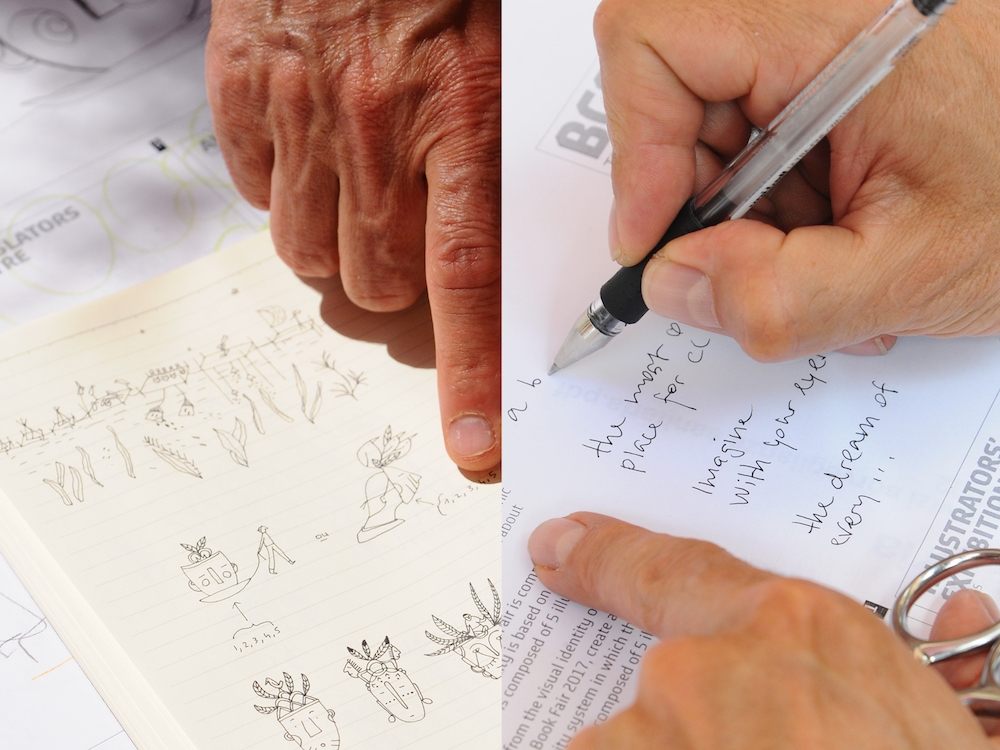 GLATORS
RE
{1,2,3,4,5
ou
1,2,3,4,5
BC
a b
the most
place for
Imagine
with your eyes
the dream of
every...
ILLUSTRATORS'
EXHIBITION
about
air is com
ty is based on
s composed of 5 illu
from the visual identity o
Book Fair 2017, create a
ity system in which th
composed of 5 il